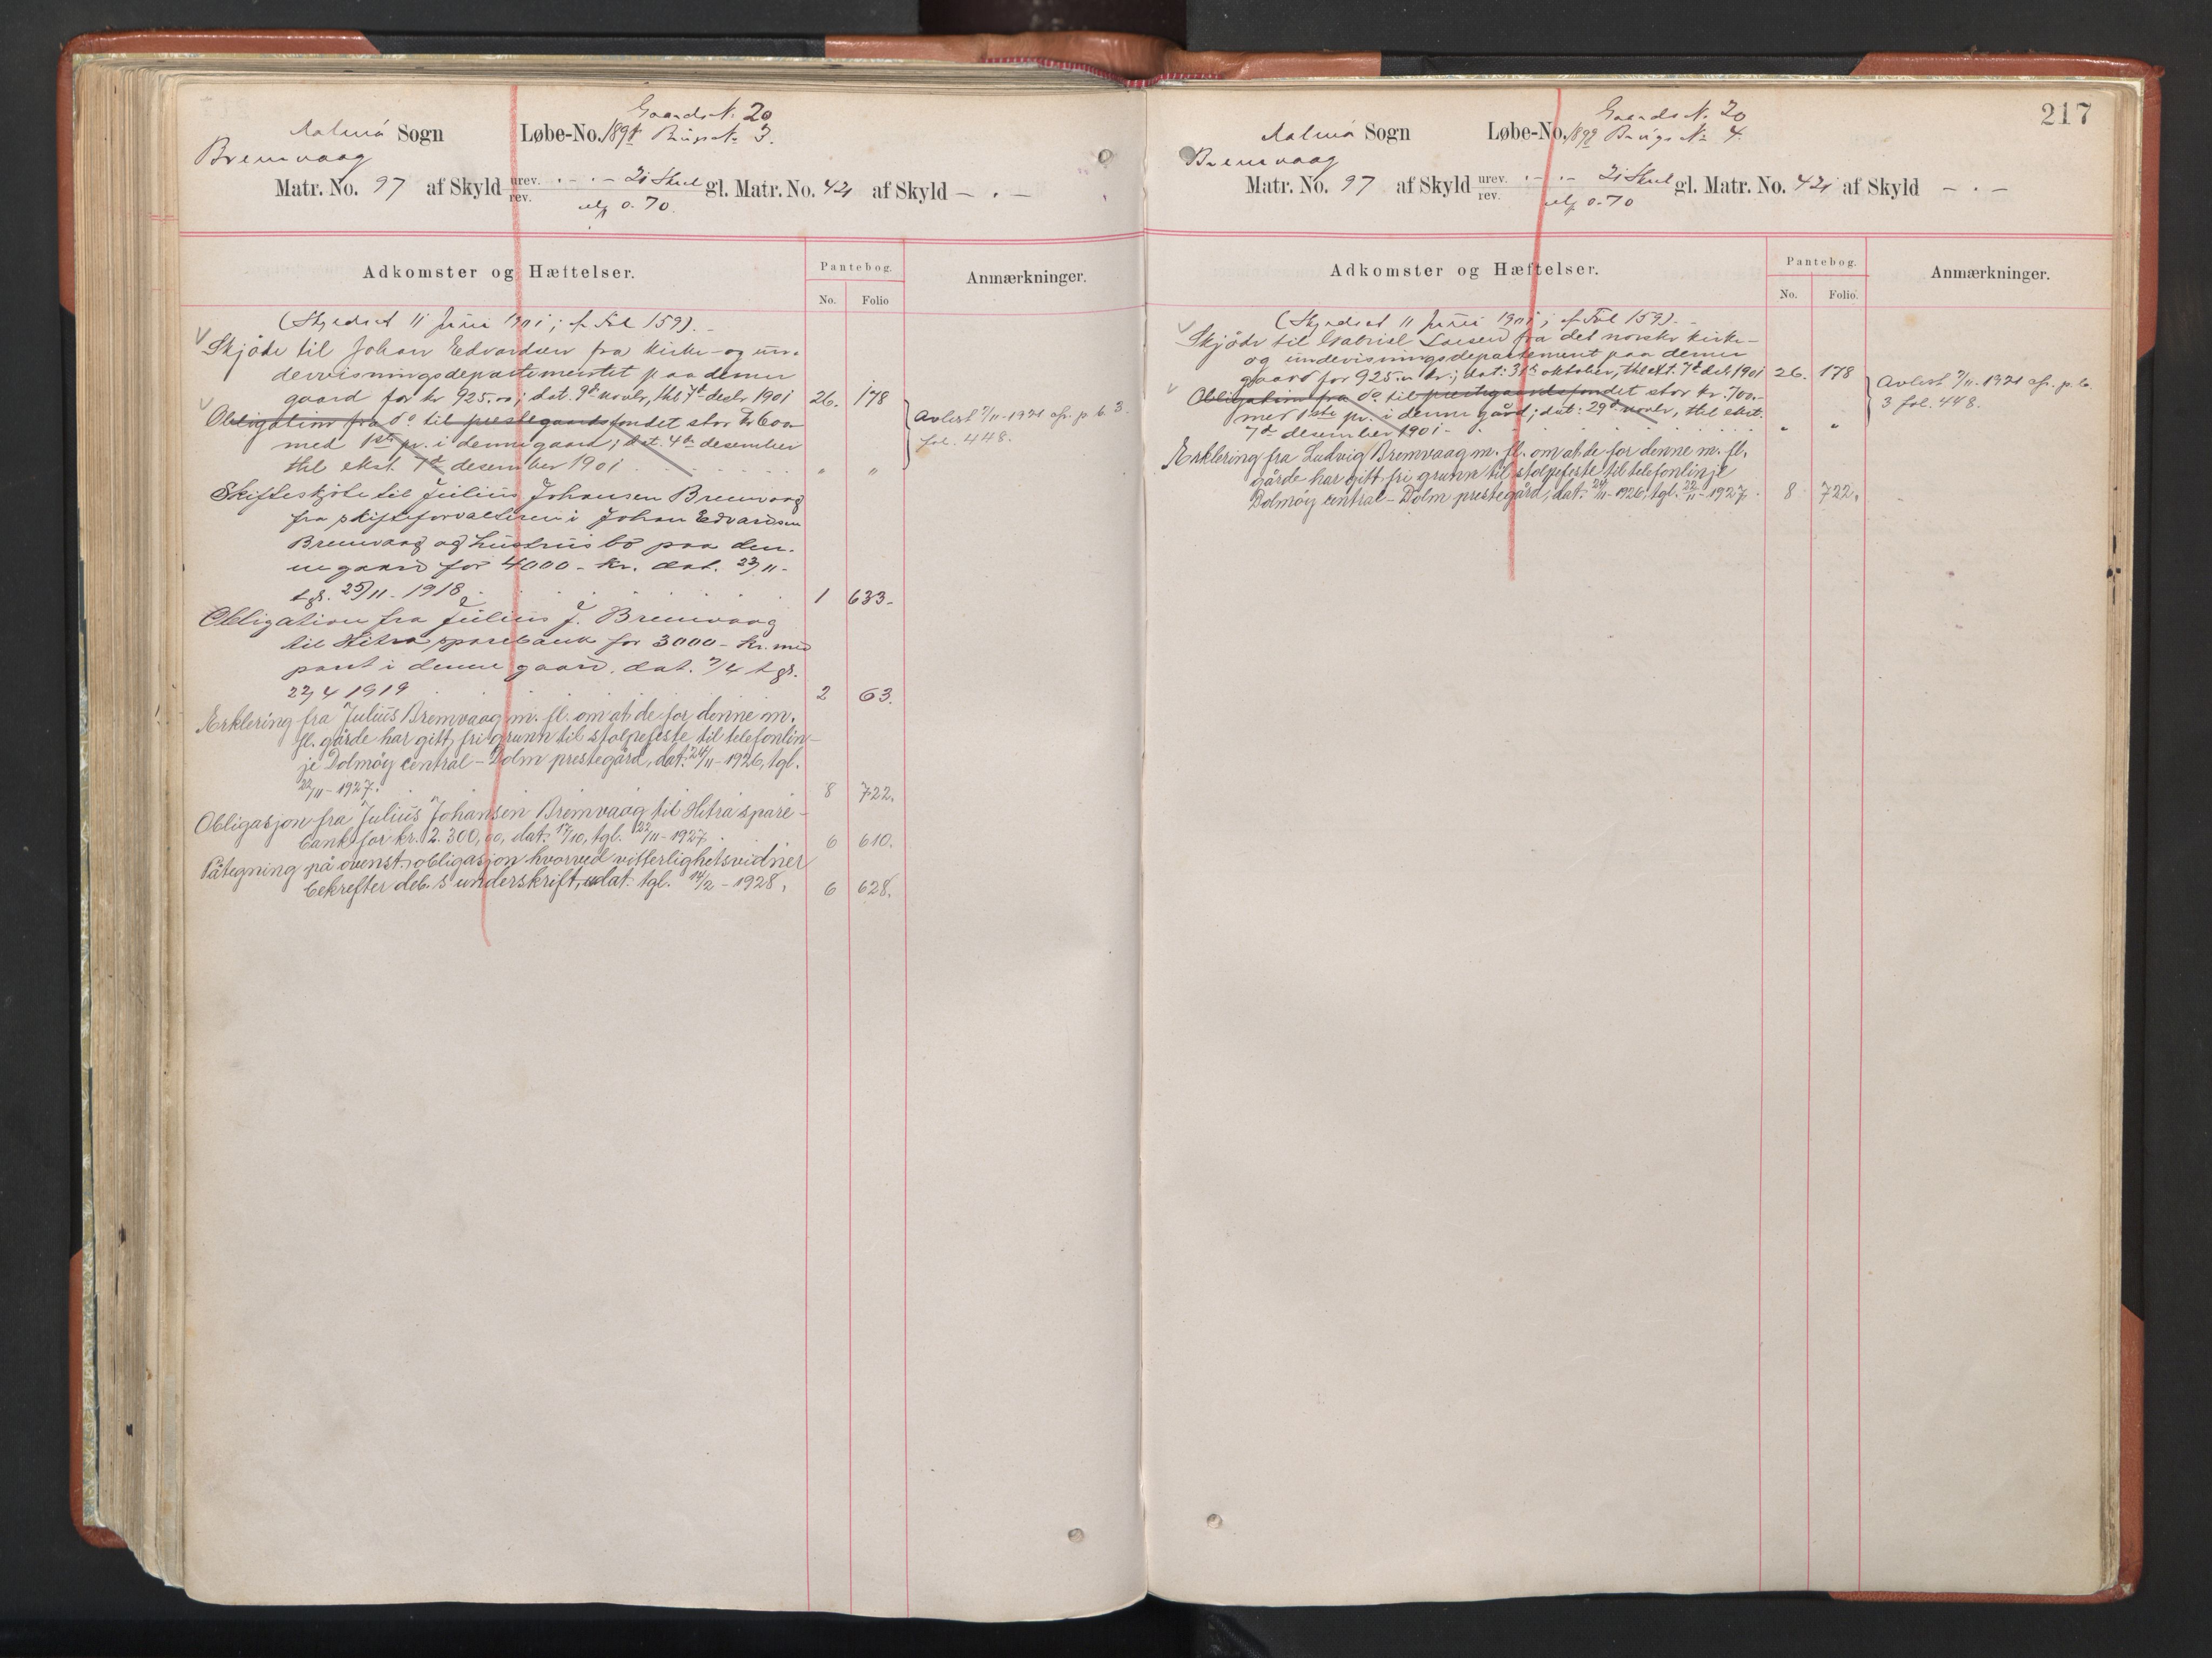 Gaards N. 20
Sogn Løbe-No. 189 Brugs N. 3.
Bremvaag
Matr. No. 97 af Skyld urev. . - . - 21 Skil gl. Matr. No. 421 af Skyld - . -
rev. 0.70.
Adkomster og Hæftelser.
Pantebog.
No. Folio
Anmærkninger.
(Skyldsat 11 Juni 1901; cf. Fol 159). -
Skjöde til Johan Edvardsen fra kirke- og un-
dervisningsdepartementet paa denne
gaard for kr 925.00; dat. 9de novbr, thl 7de decbr 1901 26. 178
Obligation fra do til prestegaardsfondet stor kr 600
med 1ste pr. i denne gaard; dat. 4de desember
thl ekst. 7de desember 1901 " "
Avlest 7/11-1921 cfr. p. b. 3.
fol. 448.
Skifteskjöte til Julius Johansen Bremvaag
fra skifteforvalteren i Johan Edvardsen
Bremvaag og hustrus bo paa den-
ne gaard for 4000 - kr. dat. 23/11 -
tgl. 25/11 - 1918. 1 633.
Obligation fra Julius J. Bremvaag
til Hitra sparebank for 3000 - kr. med
pant i denne gaard. dat. 7/4 tgl.
22/4 1919 2 63.
Erklering fra Julius Bremvaag m. fl. om at de for denne m.
fl. gårde har gitt fri grunn til stolpefeste til telefonlin-
je Dolmöy central - Dolm prestegård, dat. 24/11 - 1926, tgl.
22/11 - 1927. 8 722.
Obligasjon fra Julius Johansen Bremvaag til Hitra spare-
bank for kr. 2.300,00, dat. 17/10, tgl. 22/11 - 1927. 6 610.
Påtegning på ovenst. obligasjon hvorved vitterlighetsvidner
bekrefter deb.s underskrift, udat. tgl. 14/2 - 1928, 6 628.
217
Gaards N. 20
Sogn Løbe-No. 189 Brugs N. 4.
Bremvaag
Matr. No. 97 af Skyld urev. . - . - 21 Skil gl. Matr. No. 421 af Skyld - . -
rev. 0.70
Adkomster og Hæftelser.
Pantebog.
No. Folio.
Anmærkninger.
(Skyldsat 11 Juni 1901; cf. Fol 159). -
Skjöde til Gabriel Larsen fra det norske kirke-
og undervisningsdepartement paa denne
gaard for 925.00 kr.; dat. 31te oktober, thl ekst. 7de decb 1901 26. 178
Obligation fra do til prestegaardsfondet stor kr. 700.-
med 1ste pr. i denne gård; dat. 29de novbr, thl ekst.
7de desember 1901 - " "
Avlest 7/11-1921 cfr. p. b.
3 fol. 448.
Erklering fra Ludvig Bremvaag m. fl. om at de for denne m. fl.
gårde har gitt fri grunn til stolpefeste til telefonlinje
Dolmöy central - Dolm prestegård, dat. 24/11 - 1926, tgl. 22/11 - 1927. 8 722.